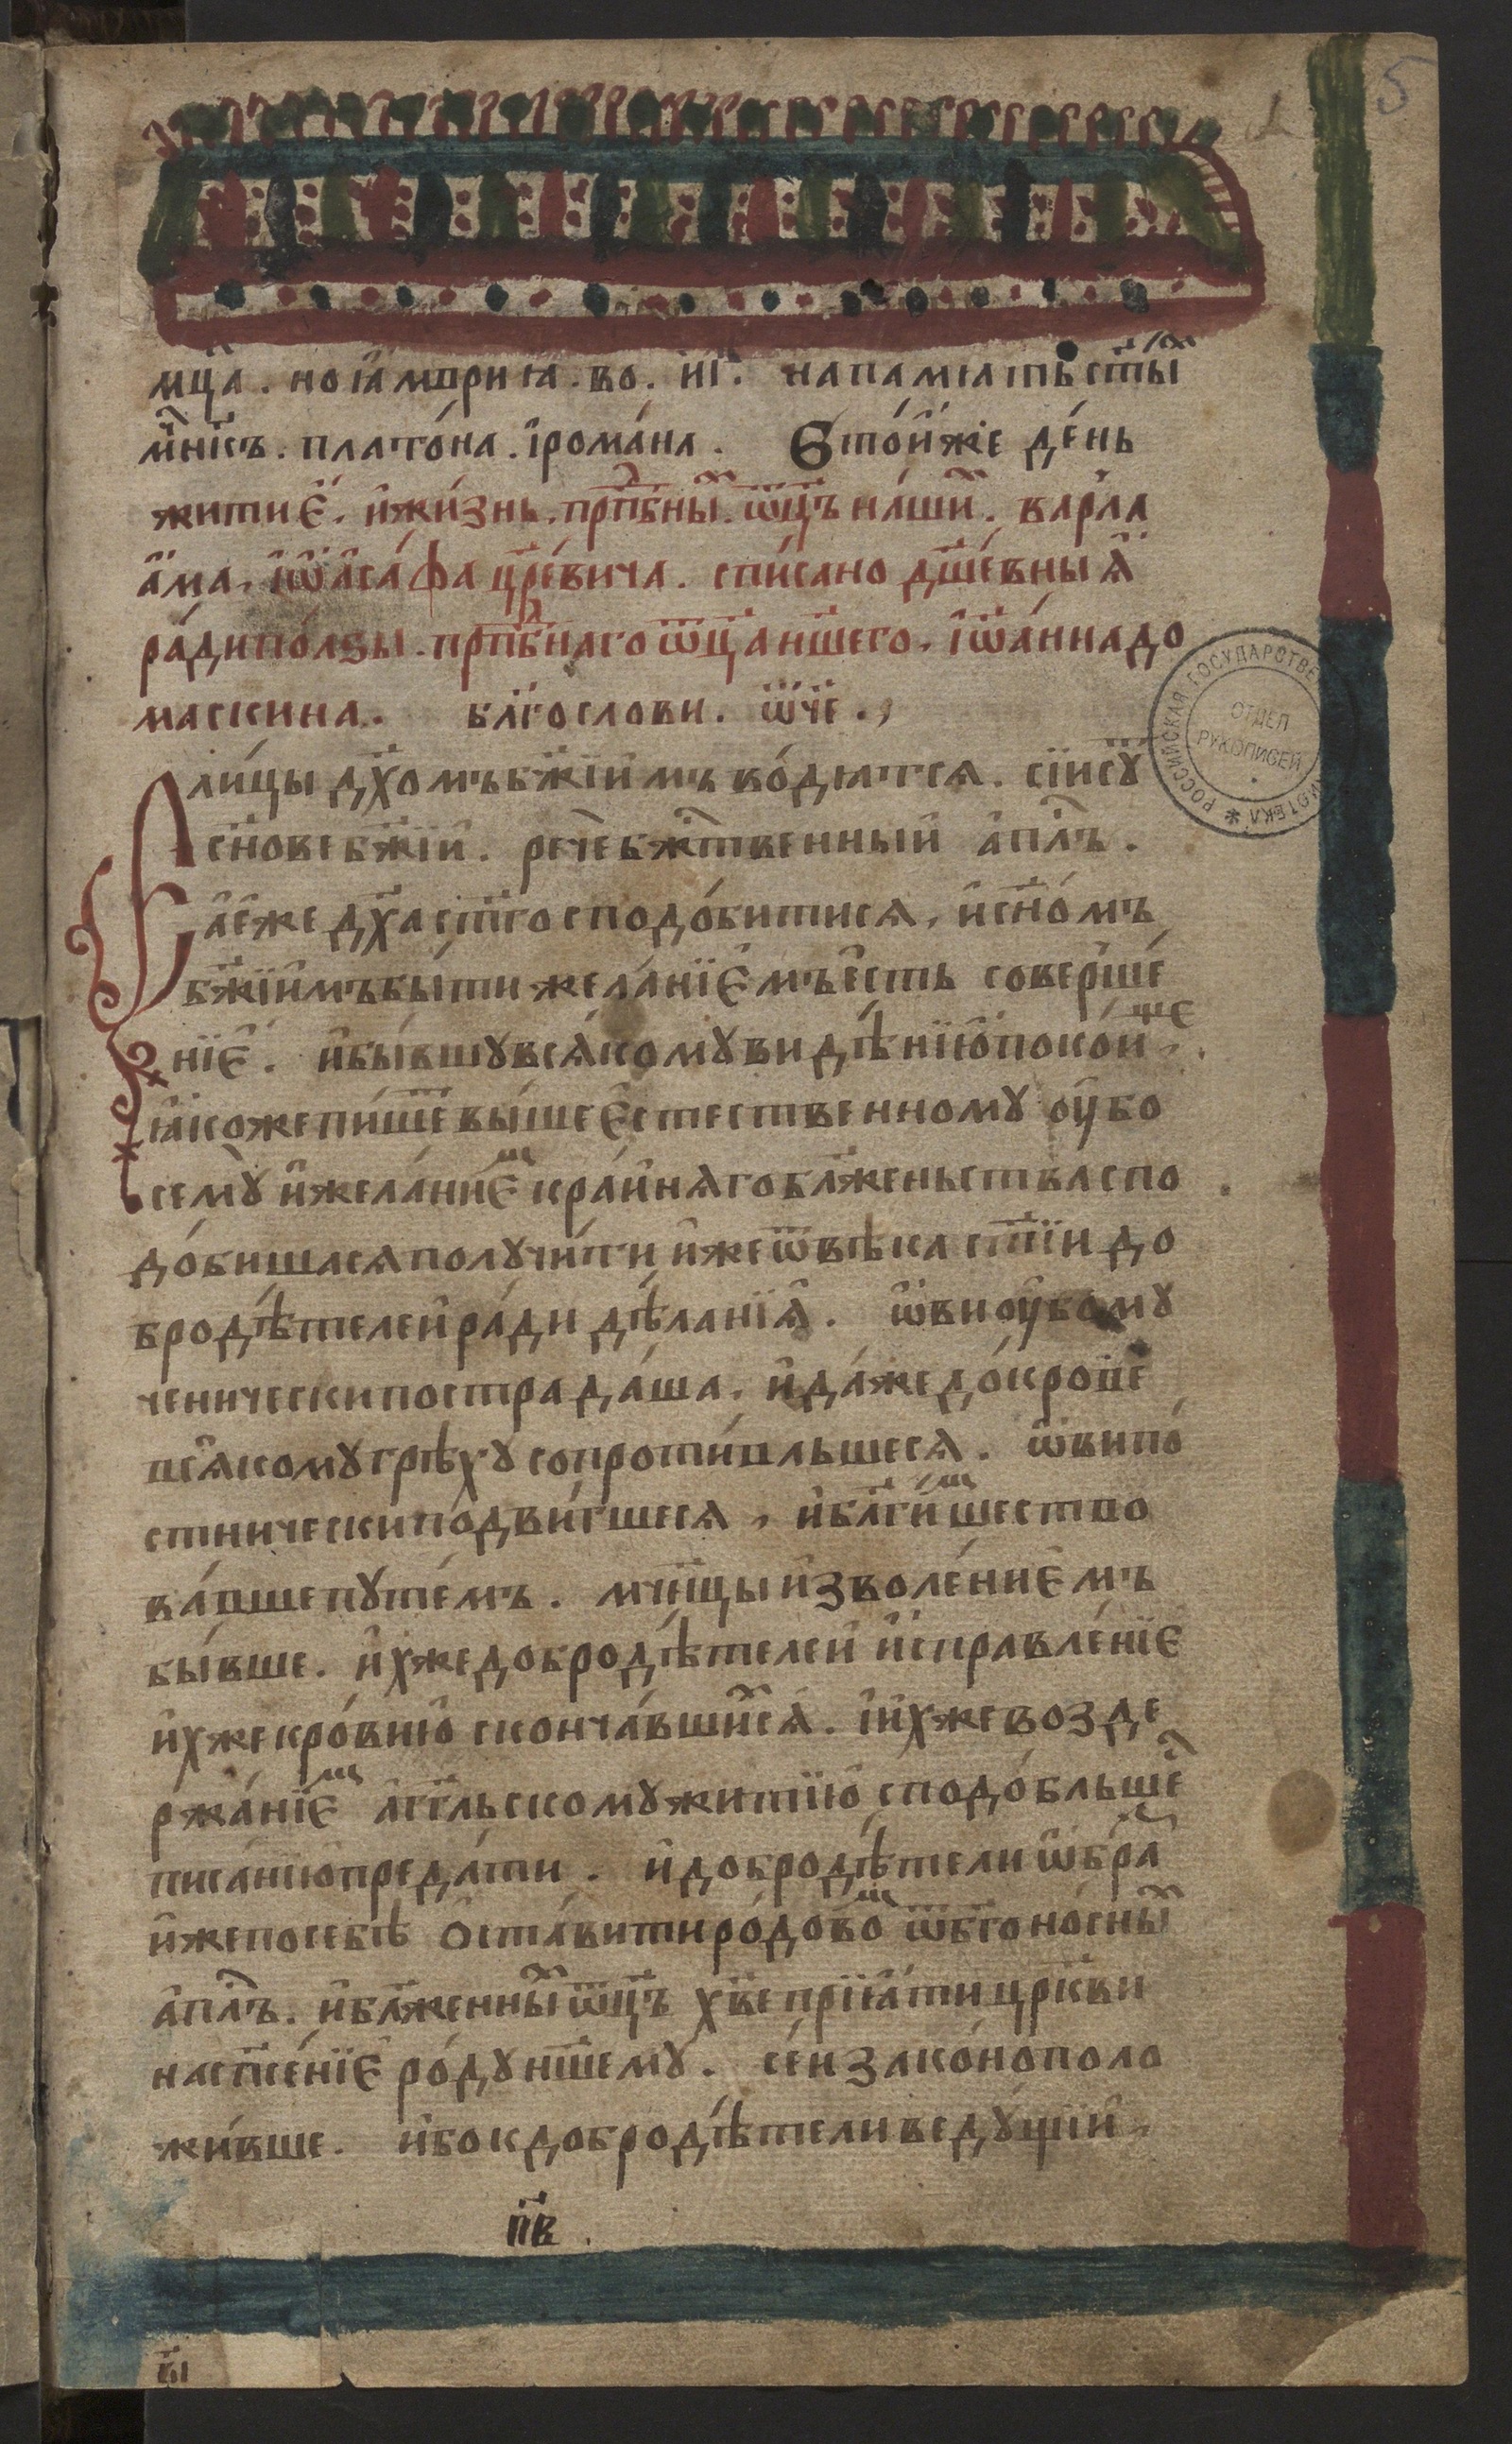 5
мц҃а. ноіамврнıа. во. иі҃. напамıать ст҃ы
мч҃нкъ. плато́на. і҆рома́на. Втóйже де́нь
житиє́. и҆жи́знь. прпⷣбны. ѿц҃ъ на́ши. варла
а҆ма. і҆ѡ҆аса́фа цр҃е́вича. спи́сано дш҃е́вныѧ҆
ра́дипо́лзы. прпⷣбнаго ѿц҃а нш҃его. і҆ѡа́ннадо
маскина. бл҃гослови. ѿч҃е.
Єли́цы дх҃омъбж҃іимъ во́дıатсѧ. сіисꙋ́
сн҃овебж҃іи. речебж҃твенный а҆пⷭ҇лъ.
а҆є҆же дх҃аст҃господо́битисѧ, и҆сн҃о́мъ
бж҃іимъбы́ти жела́нїє́мъ є҆сть соверше́
нїє. и҆бы́вшꙋвсѧ́комꙋвидѣ́нїюпоко́и
ıа҆кожепи́шевы́шеє҆стественномꙋ оу҆бо
семꙋ̀ и҆жела́ниє кра́йнѧгобл҃женьства спо
до́бишасѧполꙋчи́ти и҆жеѿвѣ́ка ст҃їи до
бродѣ́телейра́ди дѣ́ланїѧ. ѡ҆виоу҆бомꙋ
ченическипострада́ша. и҆да́жедо́крове
всѧ́комꙋгрѣхꙋ̀ сопроти́вльшесѧ. ѡ҆випо́
стническипо́дви́гшесѧ, и҆бл҃ги́ шество
ва́вшепꙋте́мъ. мч҃нцы и҆зволе́ниє́мъ
бы́вше. и҆хжедобродѣ́телей и҆справле́нїє
и҆хжекро́вию сконча́вшисѧ. і҆и҆хжевозде
ржа́нїє а҆гг҃льскомꙋжитїю сподо́бльше
писа́ниюпреда́ти. и҆добродѣ́тели ѡ҆бра
и҆жепосебѣ̀ о҆ста́витиро́дово ѿбг҃оно́сны
а҆пⷭ҇лъ. и҆бл҃женныѿц҃ъ хв҃епрїıа́тицр҃кви
насп҃се́нїє ро́дꙋнш҃емꙋ̀. се́изако́нополо
жи́вше. и҆бокдобродѣ́теливедꙋ́щїи
пв҃
РОССИЙСКАЯ ГОСУДАРСТВЕ
ОТДЕЛ
РУКОПИСЕЙ